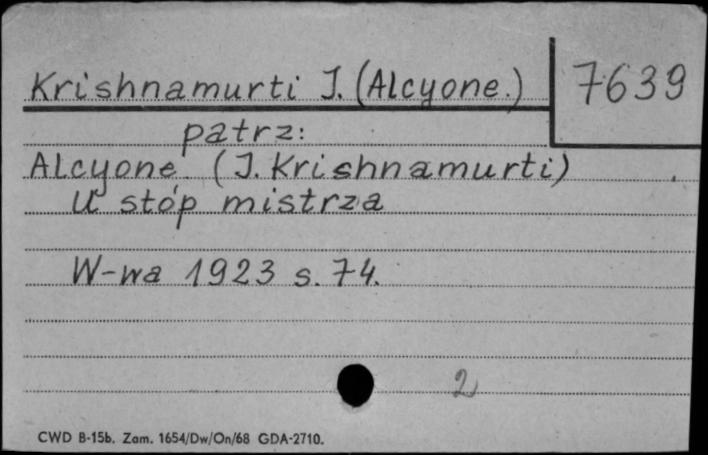 Krishnamurti J. (Alcyone.)
7639
patrz:
Alcyone. (J. Krishnamurti)
U stóp mistrza
W-wa 1923 s. 74.
2
CWD B-15b. Zam. 1654/Dw/On/68 GDA-2710.